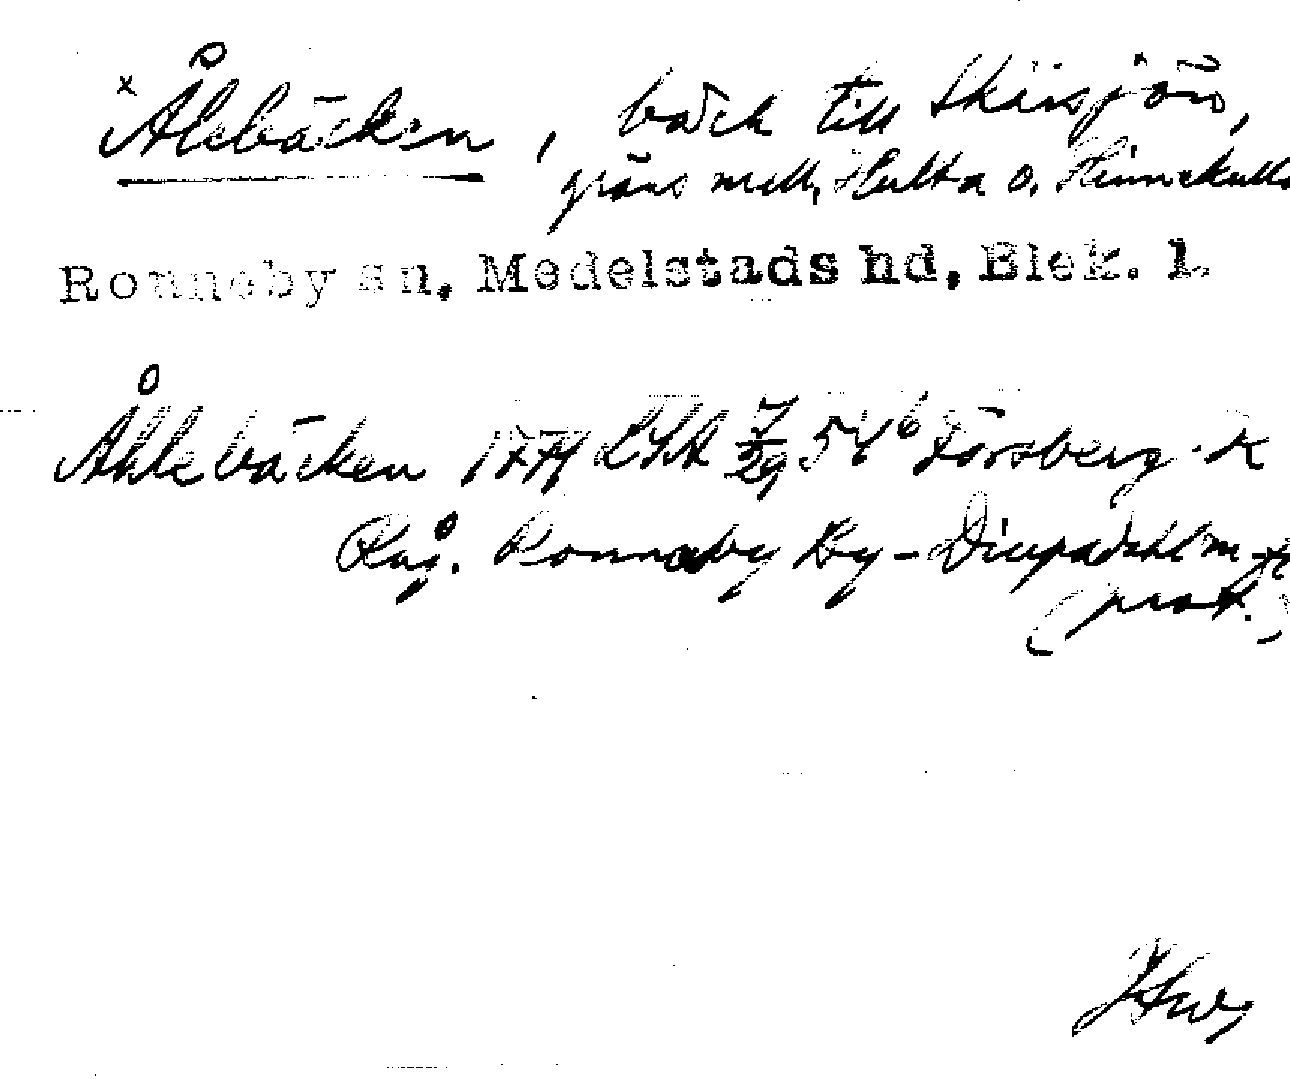 x Ålebäcken, bäck till Skärsjön,
gräns mell. Hulta o. Hinnekulla
Ronneby sn, Medelstads hd, Blek. l.
Åhlebäcken 1779 LSA 54⁶ Försberg. K
Rag. Ronneby By -
(prot.)